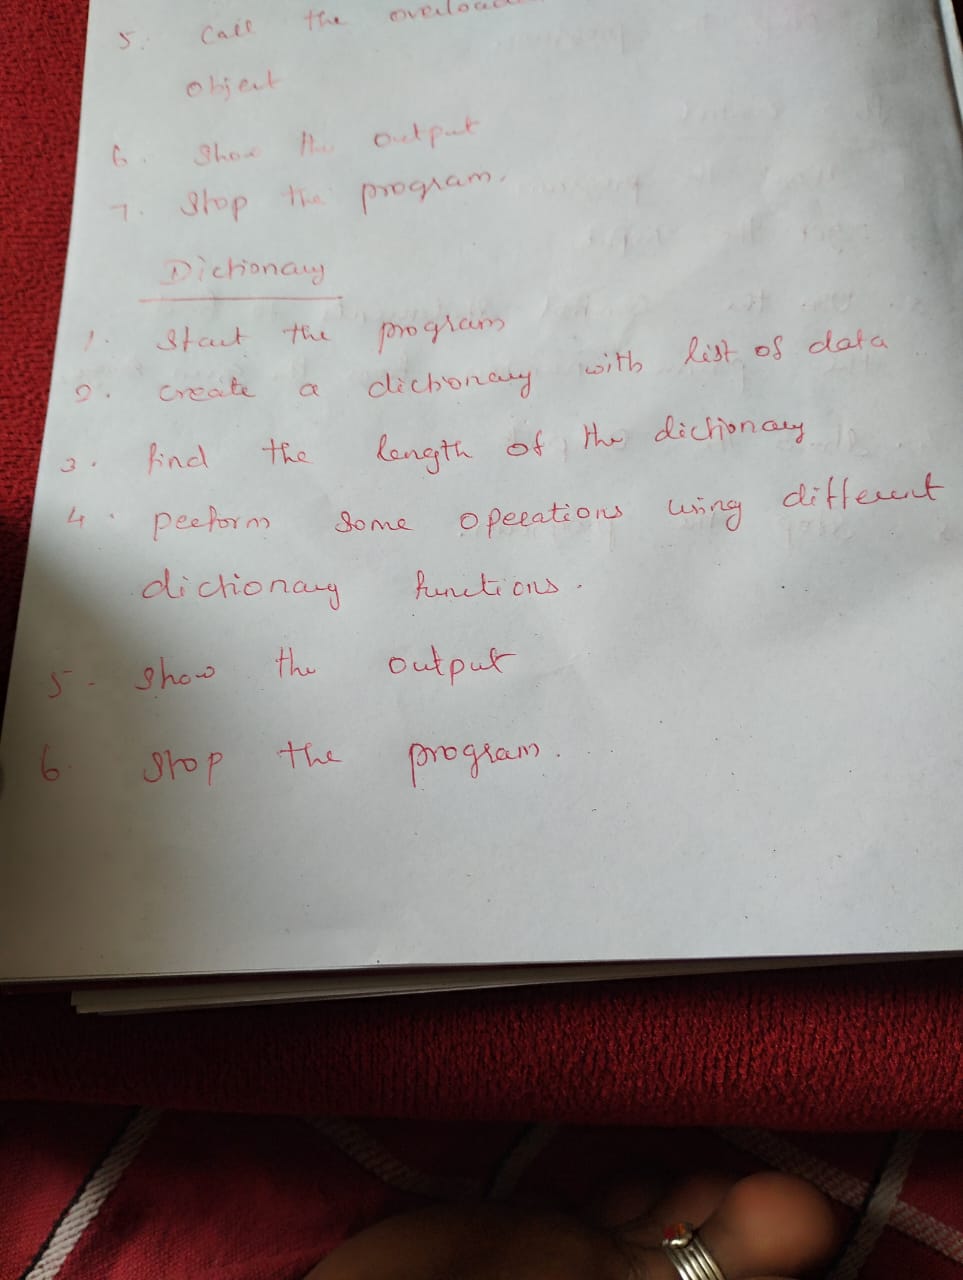 5. Call the
object
6. Show the output
7. Stop the program.
Dictionary
1. Start the program
2. create a dictionary with list of data
3. find the length of the dictionary
4. perform some operations using different
dictionary functions.
5. show the output
6. stop the program.